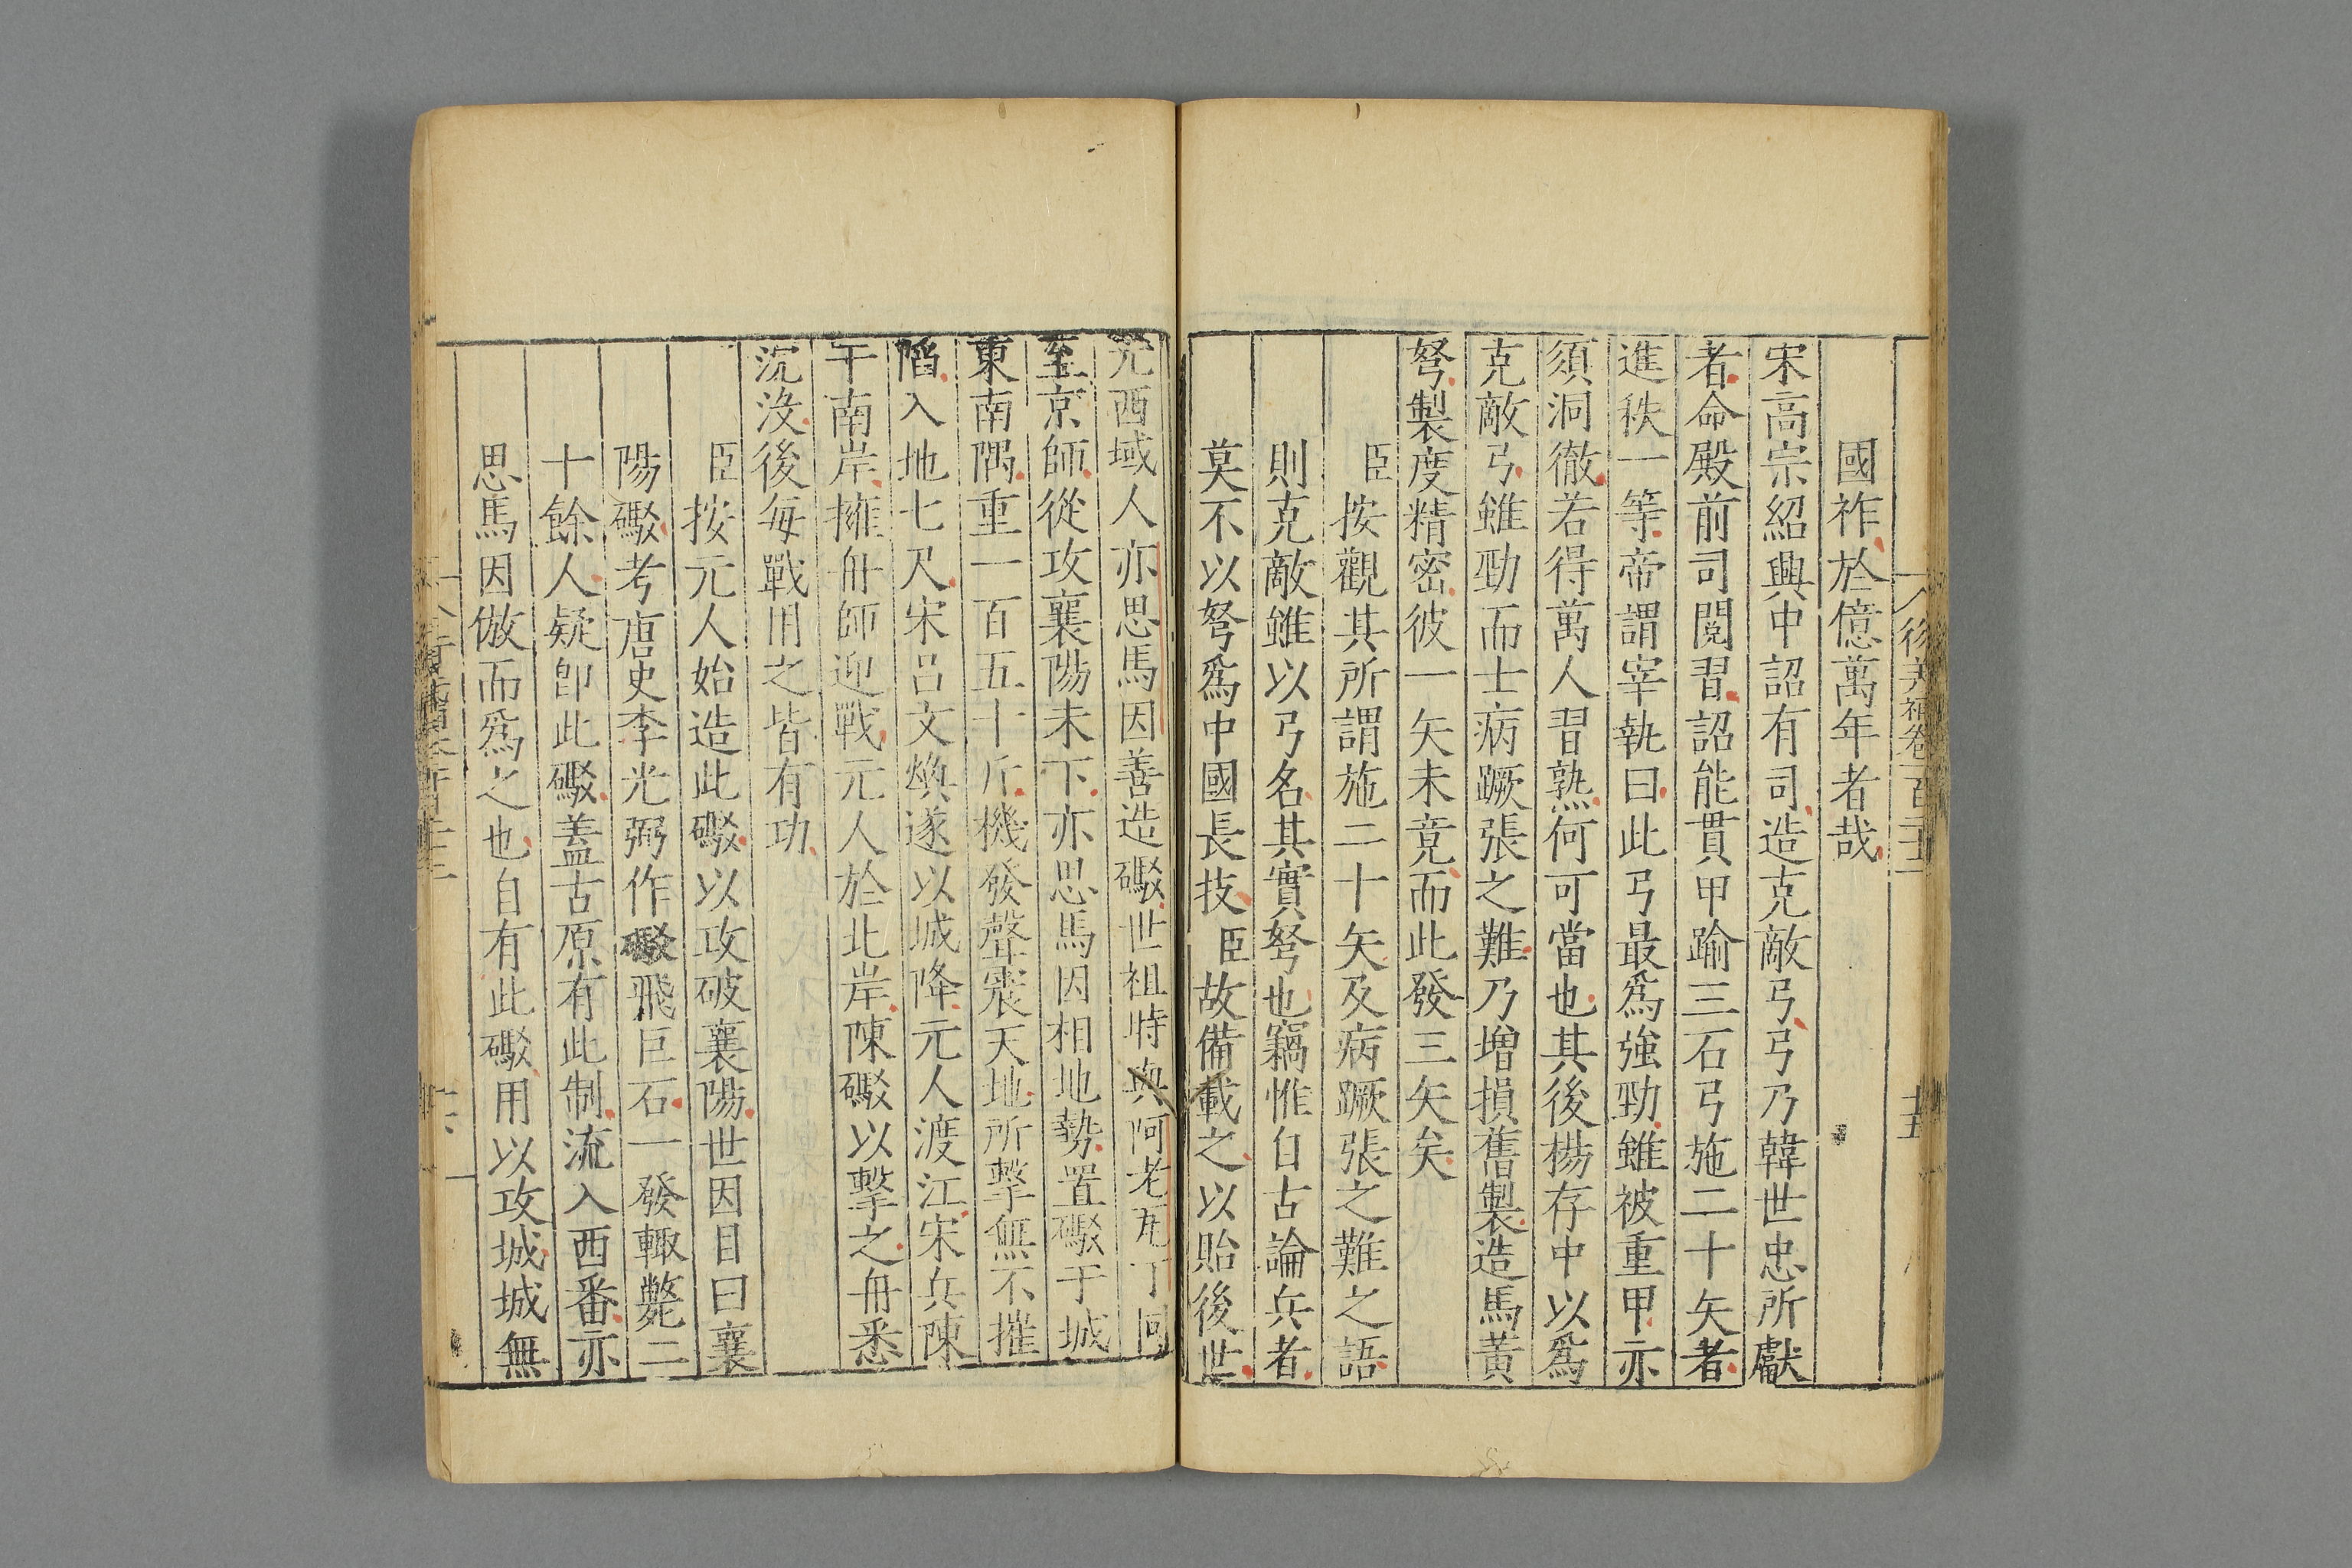 國祚於億萬年者哉
宋高宗紹興中詔有司造克敵弓弓乃韓世忠所獻
者命殿前司閱習詔能貫甲踰三石弓施二十矢者
進秩一等帝謂宰執曰此弓最爲強勁雖被重甲亦
須洞徹若得萬人習熟何可當也其後楊存中以爲
克敵弓雖勁而士病蹶張之難乃增損舊製造馬黃
弩製度精密彼一矢未竟而此發三矢矣
臣按觀其所謂施二十矢及病蹶張之難之語
則克敵雖以弓名其實弩也竊惟自古論兵者
莫不以弩爲中國長技臣故備載之以貽後世
元西域人亦思馬因善造礮世祖時與阿老瓦丁同
至京師從攻襄陽未下亦思馬因相地勢置礮于城
東南隅重一百五十斤機發聲震天地所擊無不摧
陷入地七尺宋呂文煥遂以城降元人渡江宋兵陳
于南岸擁舟師迎戰元人於北岸陳礮以擊之舟悉
沉没後每戰用之皆有功
臣按元人始造此礮以攻破襄陽世因目曰襄
陽礮考唐史李光弼作礮飛巨石一發輙斃二
十餘人疑卽此礮蓋古原有此制流入西番亦
思馬因倣而爲之也自有此礮用以攻城城無